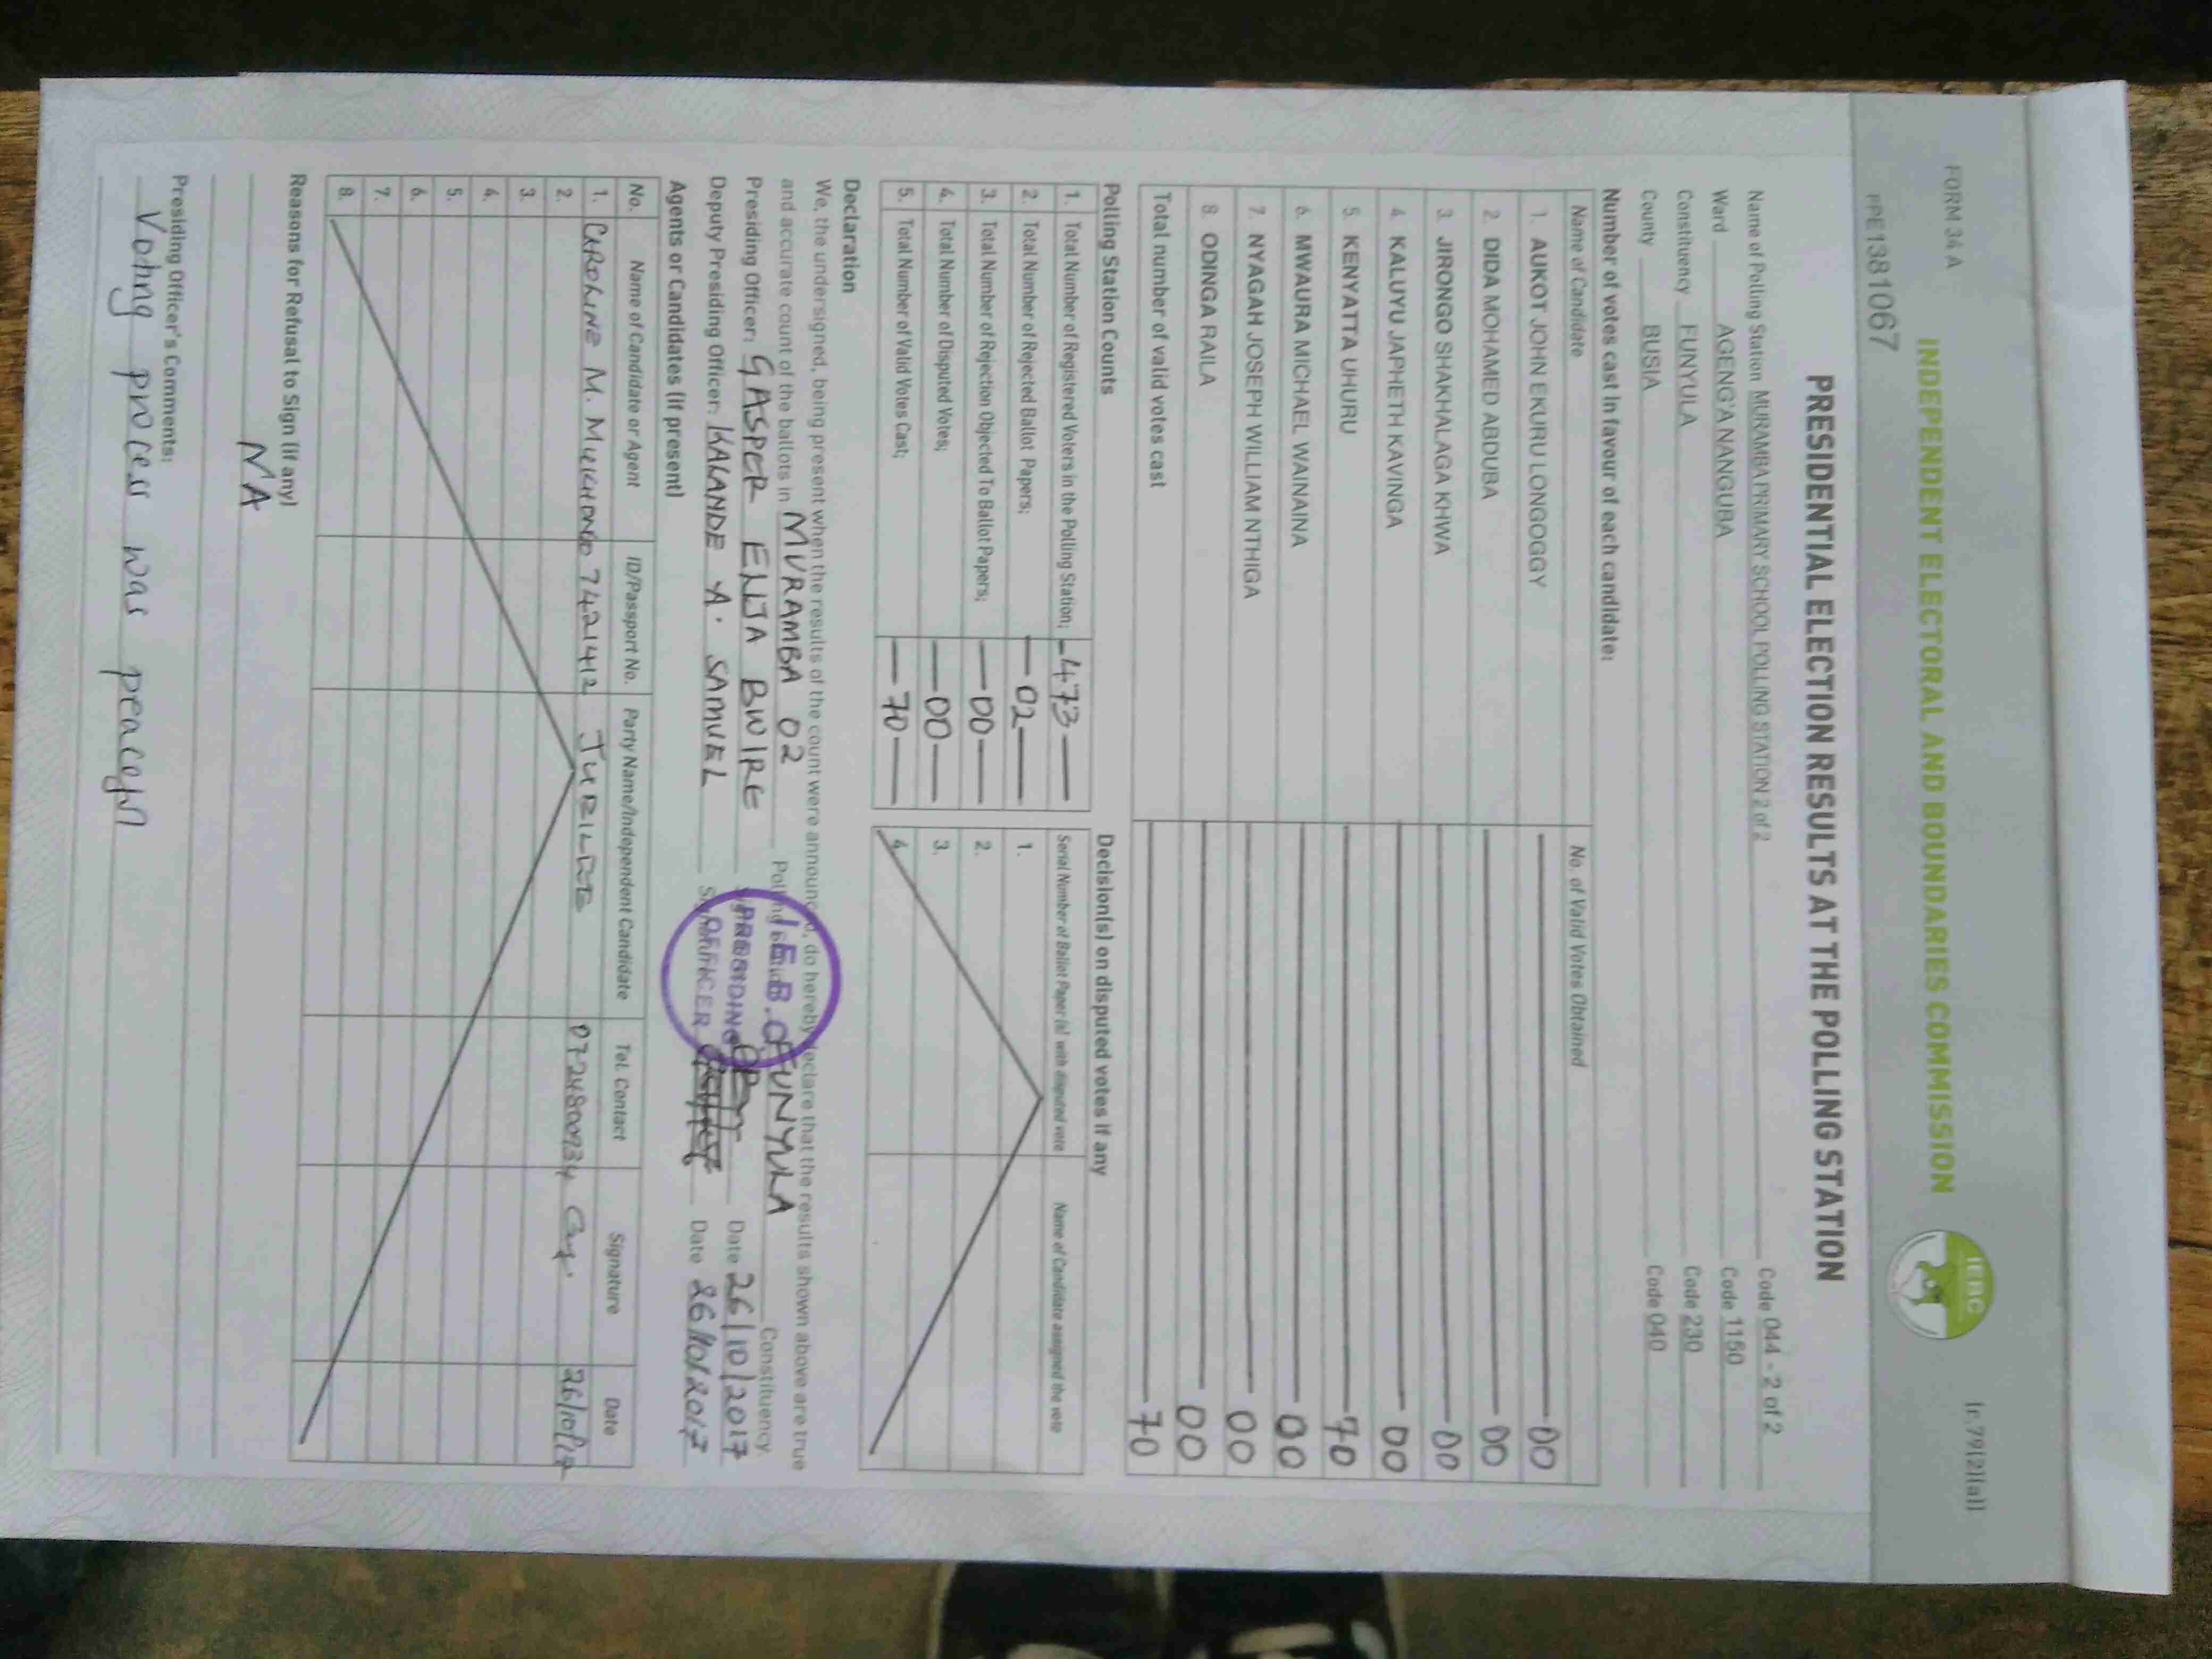 FORM 34 A
[r.79(2)(a)]
INDEPENDENT ELECTORAL AND BOUNDARIES COMMISSION
IEBC
PPE1381067
PRESIDENTIAL ELECTION RESULTS AT THE POLLING STATION
Name of Polling Station MURAMBA PRIMARY SCHOOL POLLING STATION 2 of 2 Code 044 - 2 of 2
Ward AGENG'A NANGUBA Code 1150
Constituency FUNYULA Code 230
County BUSIA Code 040
Number of votes cast in favour of each candidate:
Name of Candidate No. of Valid Votes Obtained
1. AUKOT JOHN EKURU LONGOGGY 00
2. DIDA MOHAMED ABDUBA 00
3. JIRONGO SHAKHALAGA KHWA 00
4. KALUYU JAPHETH KAVINGA 00
5. KENYATTA UHURU 70
6. MWAURA MICHAEL WAINAINA 00
7. NYAGAH JOSEPH WILLIAM NTHIGA 00
8. ODINGA RAILA 00
Total number of valid votes cast 70
Polling Station Counts
1. Total Number of Registered Voters in the Polling Station; 473
2. Total Number of Rejected Ballot Papers; 02
3. Total Number of Rejection Objected To Ballot Papers; 00
4. Total Number of Disputed Votes; 00
5. Total Number of Valid Votes Cast; 70
Decision(s) on disputed votes if any
Serial Number of Ballot Paper (s) with disputed vote Name of Candidate assigned the vote
1.
2.
3.
4.
Declaration
We, the undersigned, being present when the results of the count were announced, do hereby declare that the results shown above are true
and accurate count of the ballots in MURAMBA 02 Polling Station FUNYULA Constituency.
Presiding Officer: GASPER ELIJA BWIRE Date 26/10/2017
Deputy Presiding Officer: KALANDE A. SAMUEL Date 26/10/2017
I.E.B.C
PRESIDING
OFFICER
Agents or Candidates (if present)
No. Name of Candidate or Agent ID/Passport No. Party Name/Independent Candidate Tel. Contact Signature Date
1. CAROLINE M. 7421412 JUBILEE 0724800934 26/10/17
2.
3.
4.
5.
6.
7.
8.
Reasons for Refusal to Sign (if any)
N'A
Presiding Officer's Comments:
Voting process was peaceful